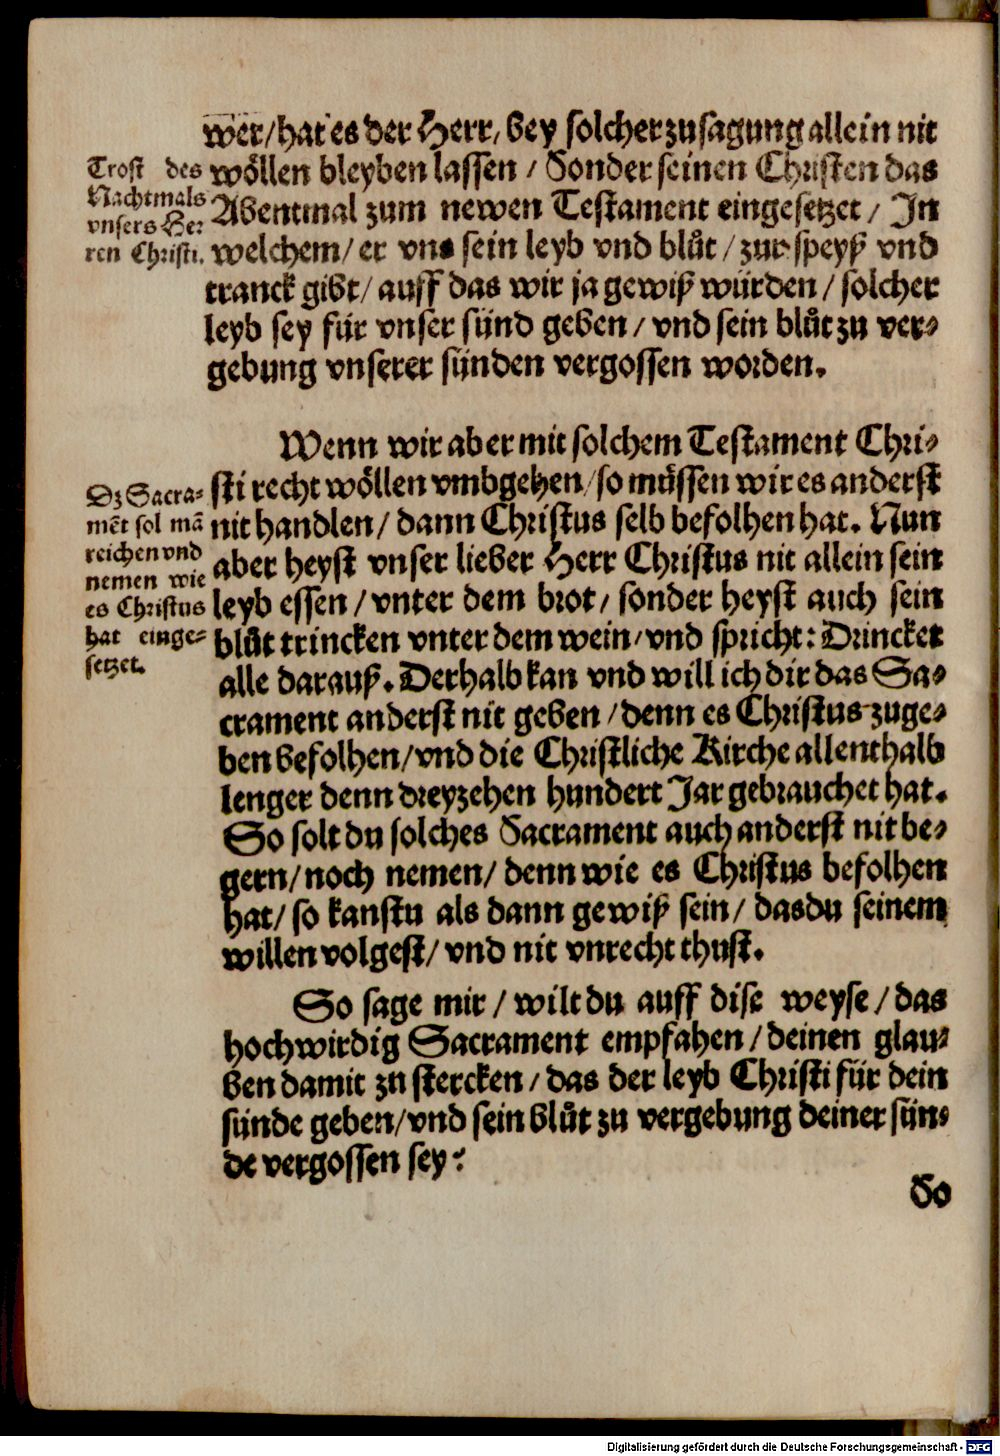 wer/hat es der Herr/ bey solcher zusagung allein nit
wöllen bleyben lassen / Sonder seinen Christen das
Abentmal zum newen Testament eingesetzet / In
welchem/ er vns sein leyb vnd blůt / zur speyß vnd
tranck gibt/ auff das wir ja gewiß würden / solcher
leyb sey für vnser sünd geben / vnd sein blůt zu ver-
gebung vnserer sünden vergossen worden.
Trost des
Nachtmals
vnsers Her
ren Christi.
Wenn wir aber mit solchem Testament Chri-
sti recht wöllen vmbgehen/ so müssen wir es anderst
nit handlen/ dann Christus selb befolhen hat. Nun
aber heyst vnser lieber Herr Christus nit allein sein
leyb essen / vnter dem brot/ sonder heyst auch sein
blůt trincken vnter dem wein/ vnd spricht: Drincket
alle darauß. Derhalb kan vnd will ich dir das Sa-
crament anderst nit geben / denn es Christus zuge-
ben befolhen/ vnd die Christliche Kirche allenthalb
lenger denn dreyzehen hundert Jar gebrauchet hat.
So solt du solches Sacrament auch anderst nit be-
gern/ noch nemen/ denn wie es Christus befolhen
hat/ so kanstu als dann gewiß sein/ dasdu seinem
willen volgest/ vnd nit vnrecht thust.
Dz Sacra-
mēt sol mā
reichen vnd
nemen wie
es Christus
hat einge-
setzet.
So sage mir / wilt du auff dise weyse / das
hochwirdig Sacrament empfahen / deinen glau-
ben damit zu stercken / das der leyb Christi für dein
sünde geben/ vnd sein blůt zu vergebung deiner sün-
de vergossen sey?
So
Digitalisierung gefördert durch die Deutsche Forschungsgemeinschaft - DFG